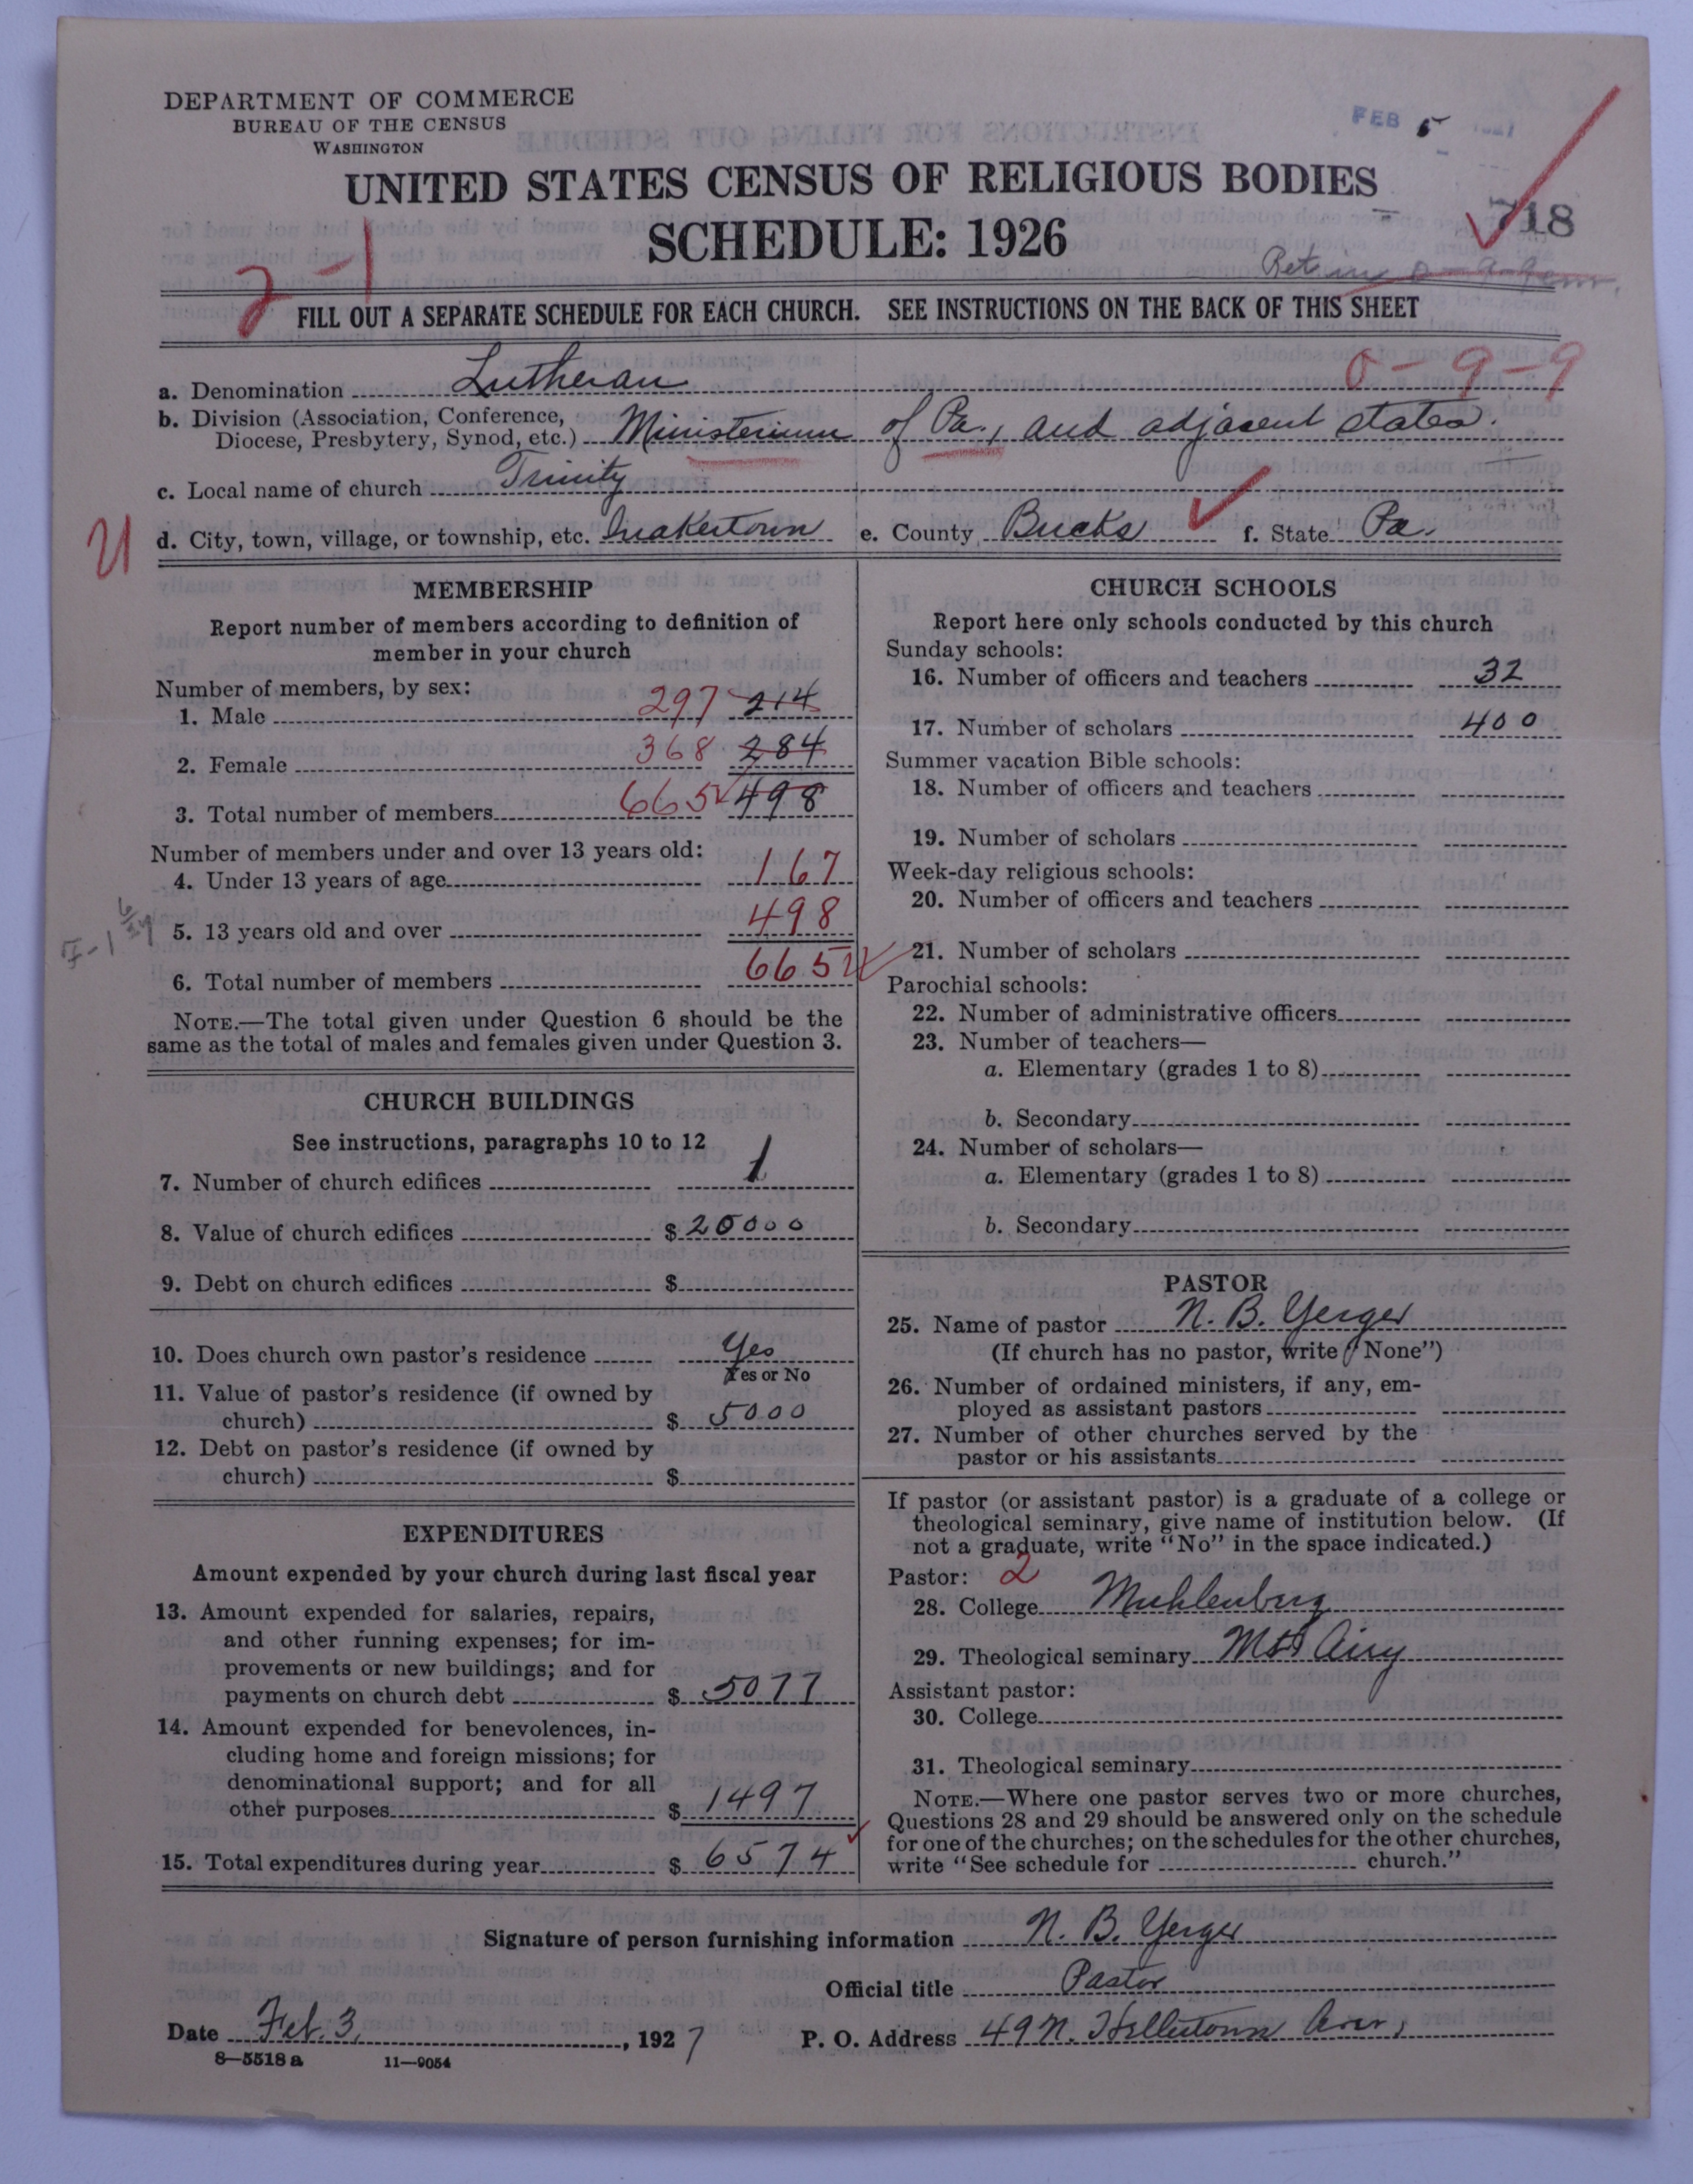 DEPARTMENT OF COMMERCE
BUREAU OF THE CENSUS
WASHINGTON
FEB 5 1927
UNITED STATES CENSUS OF RELIGIOUS BODIES
SCHEDULE: 1926
718
2-1
FILL OUT A SEPARATE SCHEDULE FOR EACH CHURCH. SEE INSTRUCTIONS ON THE BACK OF THIS SHEET
0-9-9
a. Denomination Lutheran
b. Division (Association, Conference,
Diocese, Presbytery, Synod, etc.) Ministerium of Pa., and adjacent states.
c. Local name of church Trinity
d. City, town, village, or township, etc. Quakertown e. County Bucks f. State Pa.
MEMBERSHIP
Report number of members according to definition of
member in your church
Number of members, by sex:
1. Male 297 214
2. Female 368 284
3. Total number of members 665 498
Number of members under and over 13 years old:
4. Under 13 years of age 167
5. 13 years old and over 498
6. Total number of members 665
NOTE.—The total given under Question 6 should be the
same as the total of males and females given under Question 3.
CHURCH BUILDINGS
See instructions, paragraphs 10 to 12
7. Number of church edifices 1
8. Value of church edifices $ 20000
9. Debt on church edifices $
10. Does church own pastor's residence Yes
Yes or No
11. Value of pastor's residence (if owned by
church) $ 5000
12. Debt on pastor's residence (if owned by
church) $
EXPENDITURES
Amount expended by your church during last fiscal year
13. Amount expended for salaries, repairs,
and other running expenses; for im-
provements or new buildings; and for
payments on church debt $ 5077
14. Amount expended for benevolences, in-
cluding home and foreign missions; for
denominational support; and for all
other purposes $ 1497
15. Total expenditures during year $ 6574
CHURCH SCHOOLS
Report here only schools conducted by this church
Sunday schools:
16. Number of officers and teachers 32
17. Number of scholars 400
Summer vacation Bible schools:
18. Number of officers and teachers
19. Number of scholars
Week-day religious schools:
20. Number of officers and teachers
21. Number of scholars
Parochial schools:
22. Number of administrative officers
23. Number of teachers—
a. Elementary (grades 1 to 8)
b. Secondary
24. Number of scholars—
a. Elementary (grades 1 to 8)
b. Secondary
PASTOR
25. Name of pastor N. B. Yerger
(If church has no pastor, write "None")
26. Number of ordained ministers, if any, em-
ployed as assistant pastors
27. Number of other churches served by the
pastor or his assistants
If pastor (or assistant pastor) is a graduate of a college or
theological seminary, give name of institution below. (If
not a graduate, write "No" in the space indicated.)
Pastor: 2
28. College Muhlenberg
29. Theological seminary Mt Airy
Assistant pastor:
30. College
31. Theological seminary
NOTE.—Where one pastor serves two or more churches,
Questions 28 and 29 should be answered only on the schedule
for one of the churches; on the schedules for the other churches,
write "See schedule for church."
Signature of person furnishing information N. B. Yerger
Official title Pastor
Date Feb. 3, 1927 P. O. Address 49 N. Hellertown Ave.,
8—5518 a 11—9054